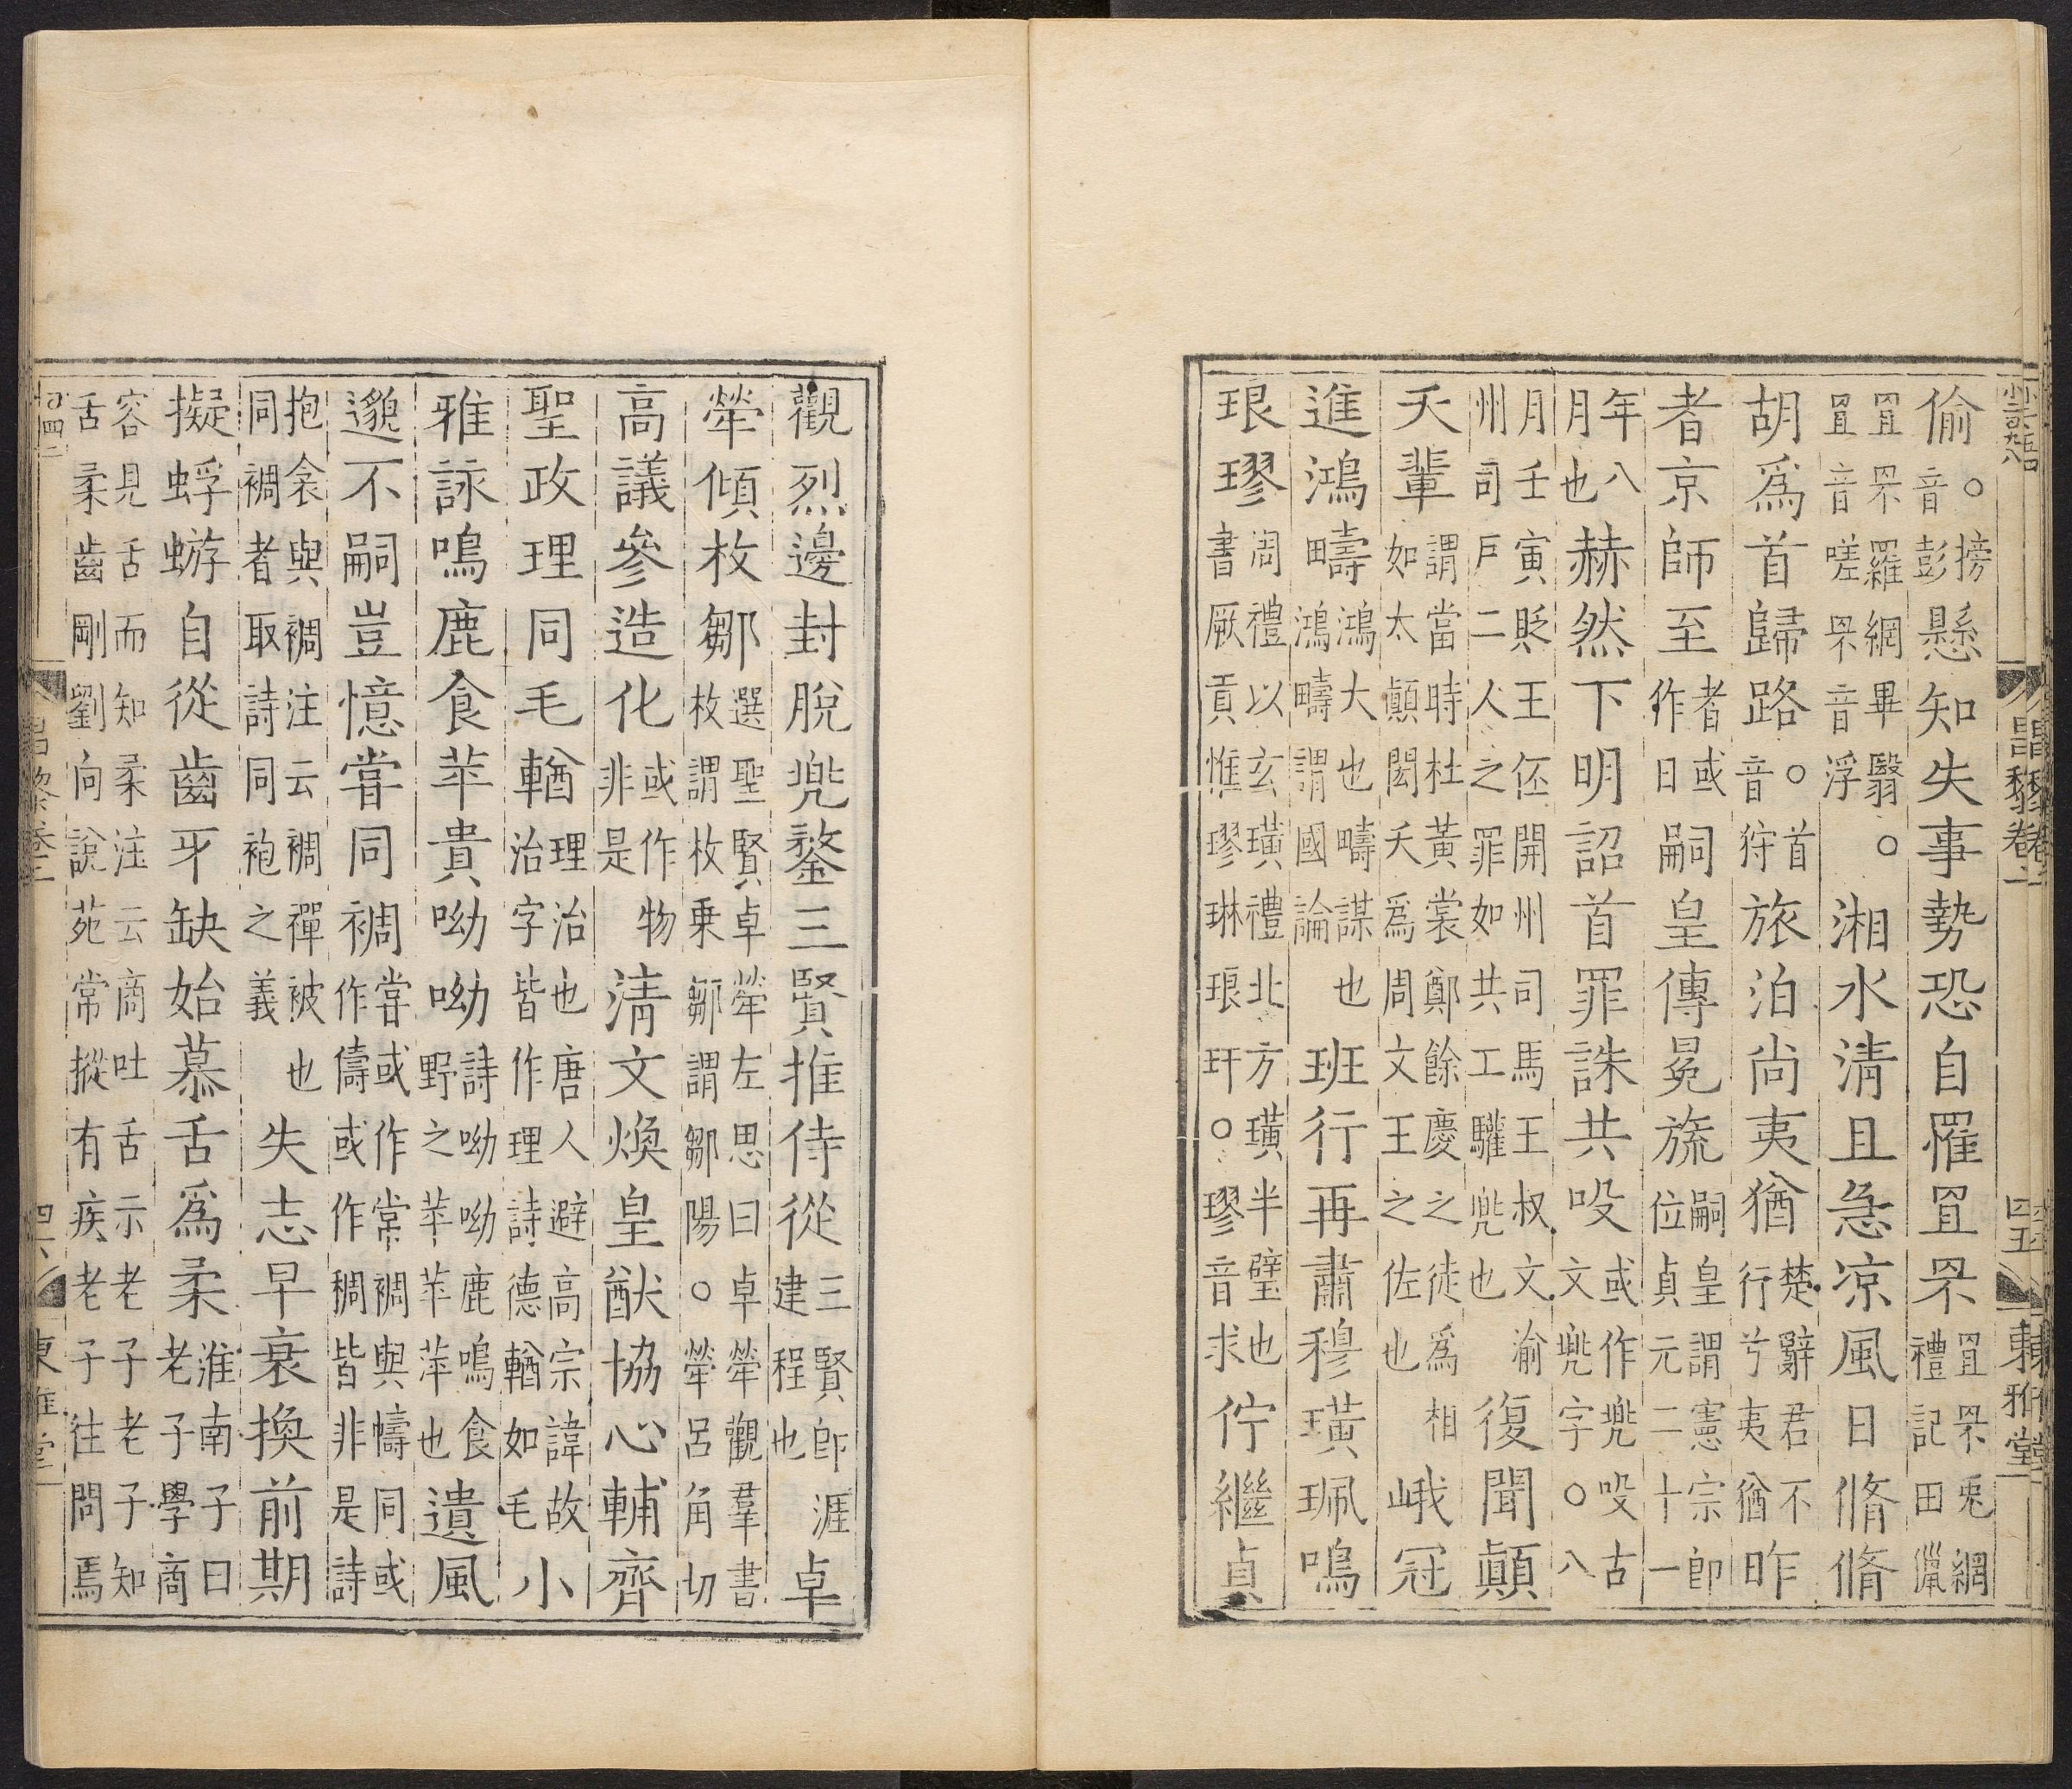 偷○搒音彭懸知失事勢恐自罹罝罘罝罘兎網禮記田獵
罝罘羅網畢翳○罝音嗟罘音浮湘水清且急凉風日脩脩
胡爲首歸路○首音狩旅泊尚夷猶楚辭君不行兮夷猶昨
者京師至者或作日嗣皇傳冕旒嗣皇謂憲宗卽位貞元二十一
年八月也赫然下明詔首罪誅共吺或作兠吺古文兠字○八
月壬寅貶王伾開州司馬王叔文渝州司戶二人之罪如共工驩兠也復聞顛
夭輩謂當時杜黃裳鄭餘慶之徒爲相如太顛閎夭爲周文王之佐也峨冠
進鴻疇鴻大也疇謀也鴻疇謂國論班行再肅穆璜珮鳴
琅璆周禮以玄璜禮北方璜半璧也書厥貢惟璆琳琅玕○璆音求佇繼貞
昌黎卷二
四十五
東雅堂
觀烈邊封脫兠鍪三賢推侍從三賢卽涯建程也卓
犖傾枚鄒選聖賢卓犖左思曰卓犖觀羣書枚謂枚乗鄒謂鄒陽○犖呂角切
高議參造化或作物非是清文煥皇猷協心輔齊
聖政理同毛輶理治也唐人避高宗諱故治字皆作理詩德輶如毛小
雅詠鳴鹿食苹貴呦呦詩呦呦鹿鳴食野之苹苹萍也遺風
邈不嗣豈憶甞同裯甞或作常裯與幬同或作儔或作稠皆非是詩
抱衾與裯注云裯禪被也同裯者取詩同袍之義失志早衰換前期
擬蜉蝣自從齒牙缺始慕舌爲柔淮南子曰老子學商
容見舌而知柔注云商吐舌示老子老子知舌柔齒剛劉向說苑常摐有疾老子往問焉
昌黎卷二
四十六
東雅堂